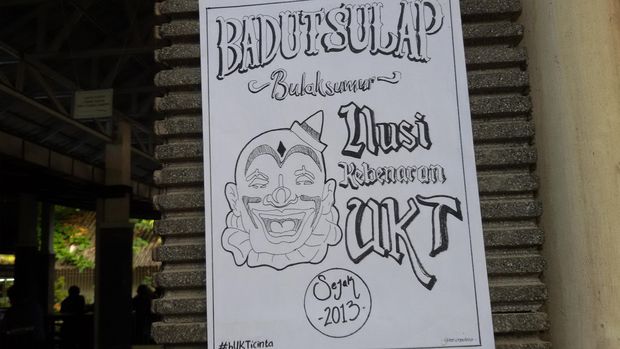 BADUTSULAP
~Bulaksumur~
Ilusi
Kebenaran
UKT
Sejak
-2013-
#bUKTicinta